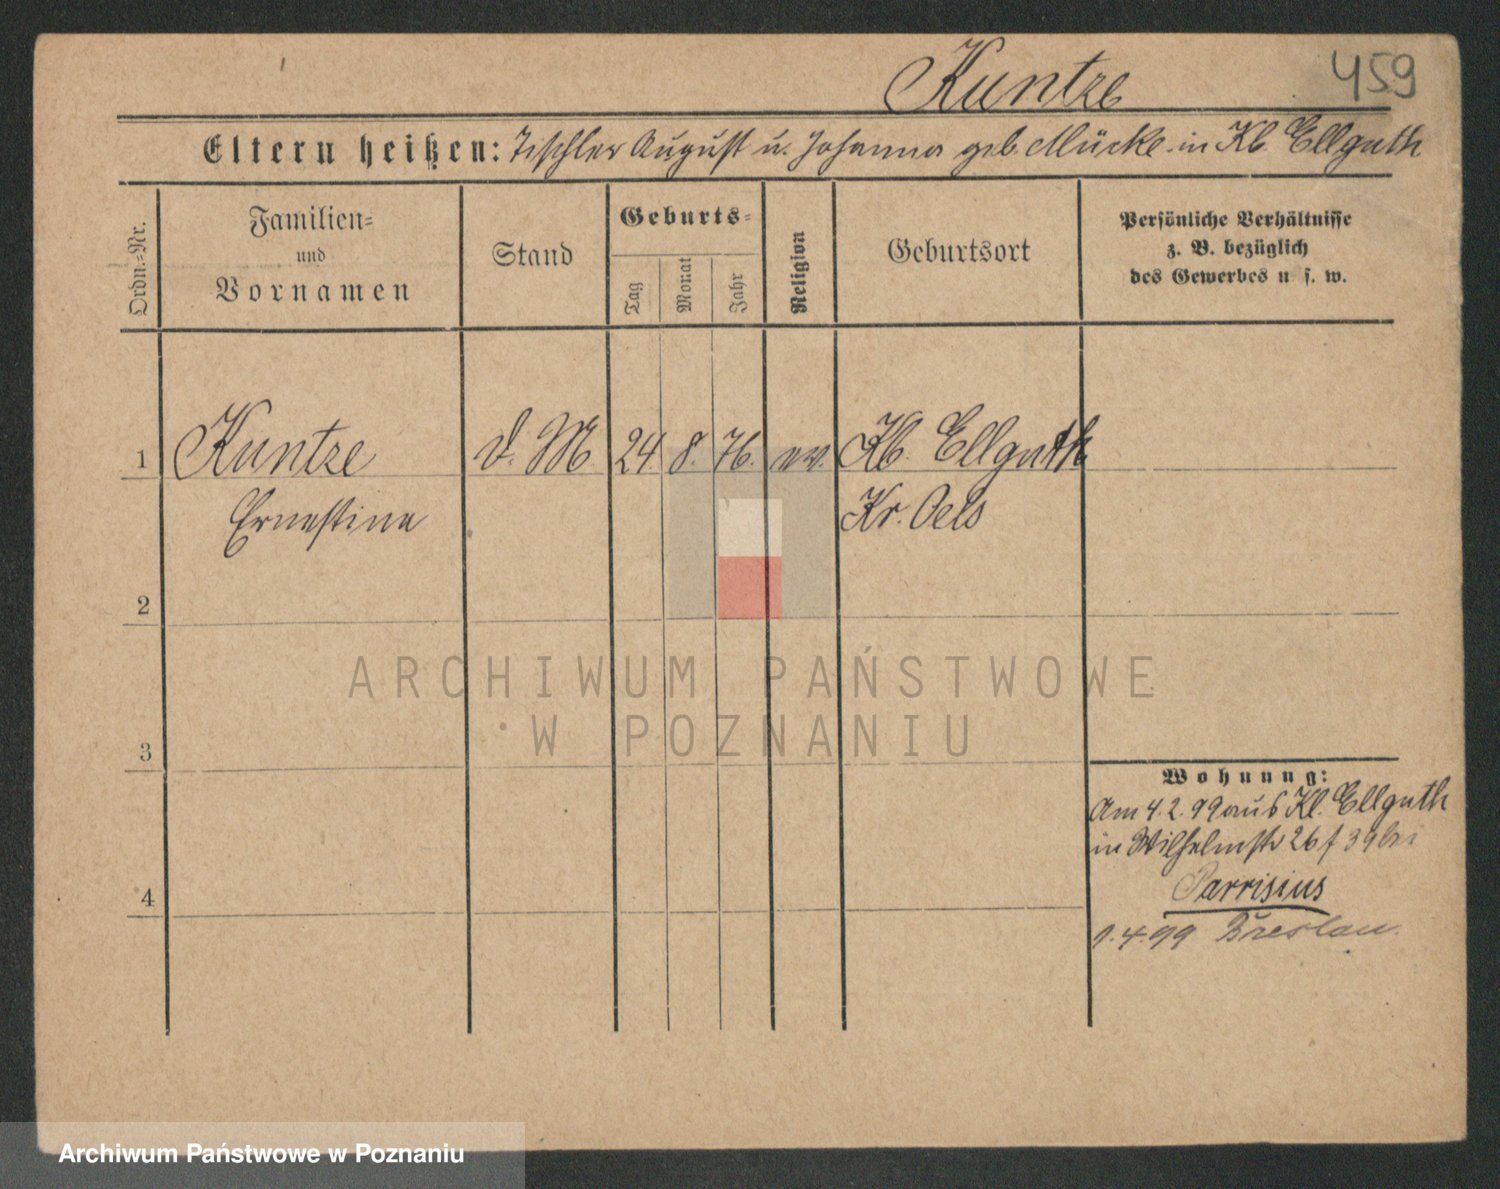 Kuntze
459
Eltern heißen: Tischler August u. Johanna geb. Mücke in Kl. Ellguth
Ordn.-Nr.
Familien-
und
Vornamen
Stand
Geburts-
Tag
Monat
Jahr
Religion
Geburtsort
Persönliche Verhältnisse
z. B. bezüglich
des Gewerbes u. s. w.
1 Kuntze d. M 24. 8. 76. ev. Kl. Ellguth
Ernestine Kr. Oels
2
3
4
Wohnung:
Am 4. 2. 99 aus Kl. Ellguth
in Wilhelmstr 26 f 39 bei
Parrisius
1. 4. 99 Breslau.
ARCHIWUM PAŃSTWOWE
W POZNANIU
Archiwum Państwowe w Poznaniu